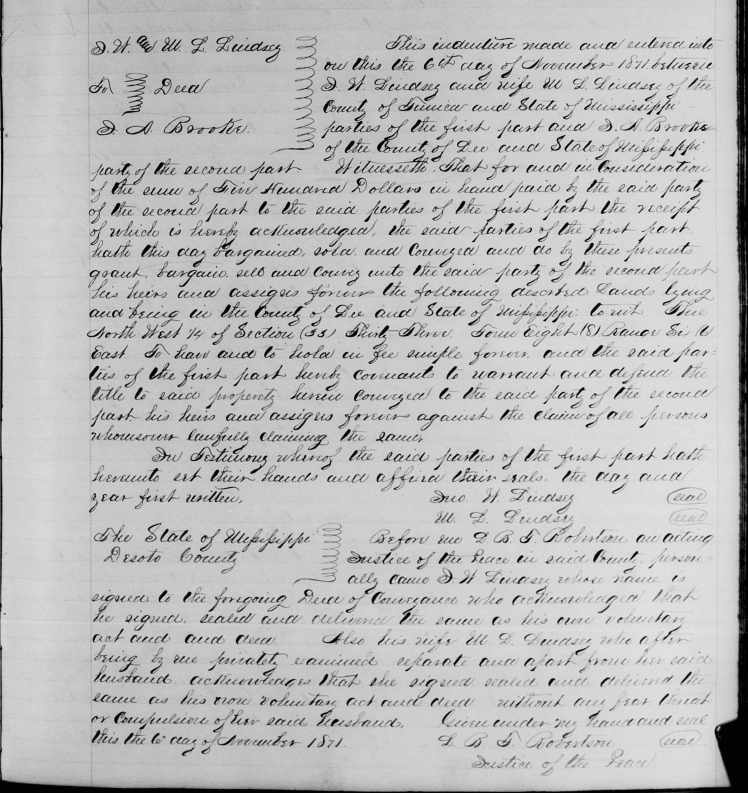 J. W. and M. L. Lindsey
To Deed
J. A. Brooke.
This indenture made and entered into
on this the 6th day of November 1871 between
J. W. Lindsey and wife M. L. Lindsey of the
County of and State of Mississippi
parties of the first part and J. A. Brooke
of the County of Lee and State of Mississippi
party of the second part Witnesseth, That for and in Consideration
of the sum of Five Hundred Dollars in hand paid by the said party
of the second part to the said parties of the first part the receipt
of which is hereby acknowledged, the said parties of the first part
hath this day bargained, sold and Conveyed and do by these presents
grant, bargain, sell and Convey unto the said party of the second part
his heirs and assigns forever the following described Lands lying
and being in the County of Lee and State of Mississippi to wit The
North West 1/4 of Section (33) Thirty Three. Town Eight (8) Range Six (6)
East To have and to hold in fee simple forever, and the said par-
ties of the first part hereby covenant to warrant and defend the
title to said property herein Conveyed to the said party of the second
part his heirs and assigns forever against the claim of all persons
whomsoever lawfully claiming the same.
In Testimony whereof the said parties of the first part hath
hereunto set their hands and affixed their seals, the day and
year first written.
Jno W. Lindsey (seal)
M. L. Lindsey (seal)
The State of Mississippi
Desoto County
Before me L B T Robertson an acting
Justice of the Peace in said County, person-
ally came J W Lindsey whose name is
signed to the foregoing Deed of Conveyance who acknowledged that
he signed, sealed and delivered the same as his own voluntary
act and and deed Also his wife M. L. Lindsey who after
being by me privately examined separate and apart from her said
husband, acknowledges that she signed sealed and delivered the
same as his own voluntary act and deed without any fear threat
or Compulsion of her said Husband. Given under my hand and seal
this the 6 day of November 1871.
L B T Robertson (seal)
Justice of the Peace